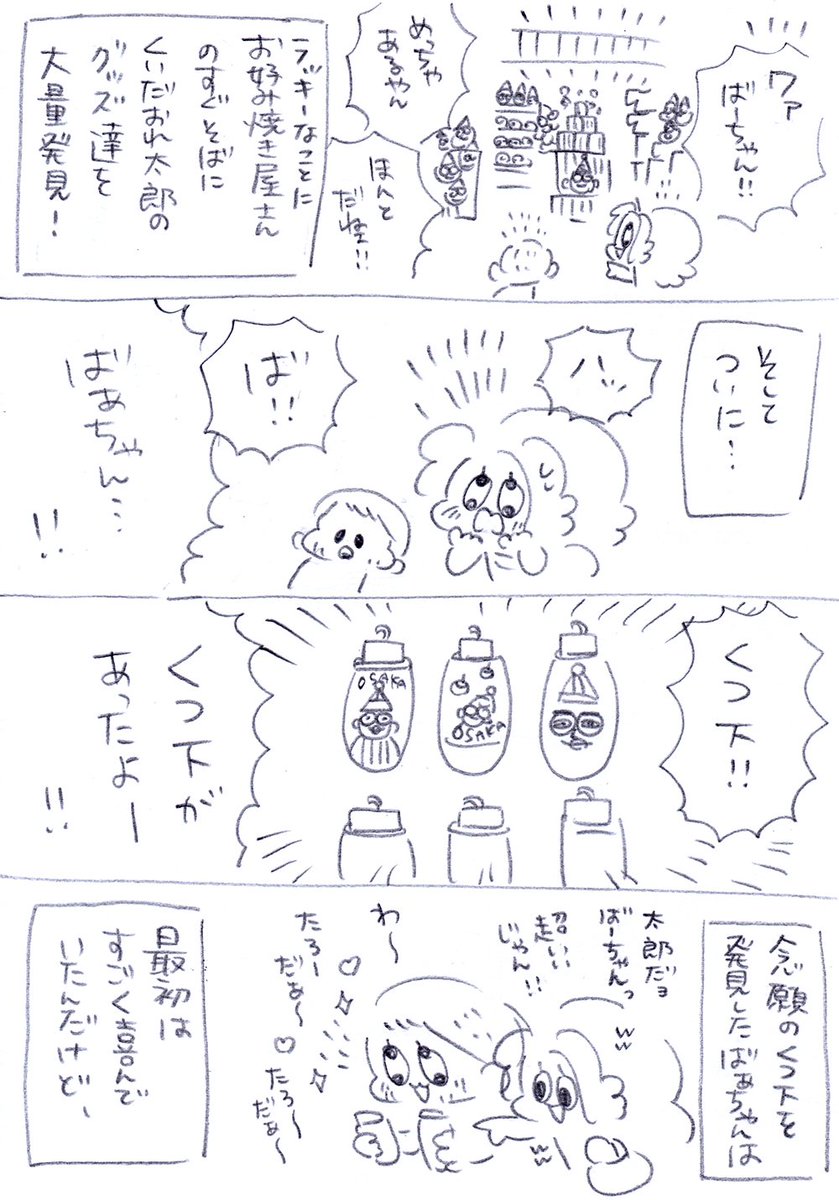 ワァ
ばーちゃん!!
めっちゃ
あるやん
ほんと
だね!!
ラッキーなことに
お好み焼き屋さん
のすぐそばに
くいだおれ太郎の
グッズ達を
大量発見!
そして
ついに…
ハッ
ば!!
ばあちゃん…
!!
くつ下!!
OSAKA
OSAKA
くつ下が
あったよー
!!
念願のくつ下を
発見したばあちゃんは
太郎だヨ
ばーちゃんっ
超いい
じゃん!!
わ〜
たろー
だぁ〜♡
たろ〜
だぁ〜
最初は
すごく喜んで
いたんだけど、